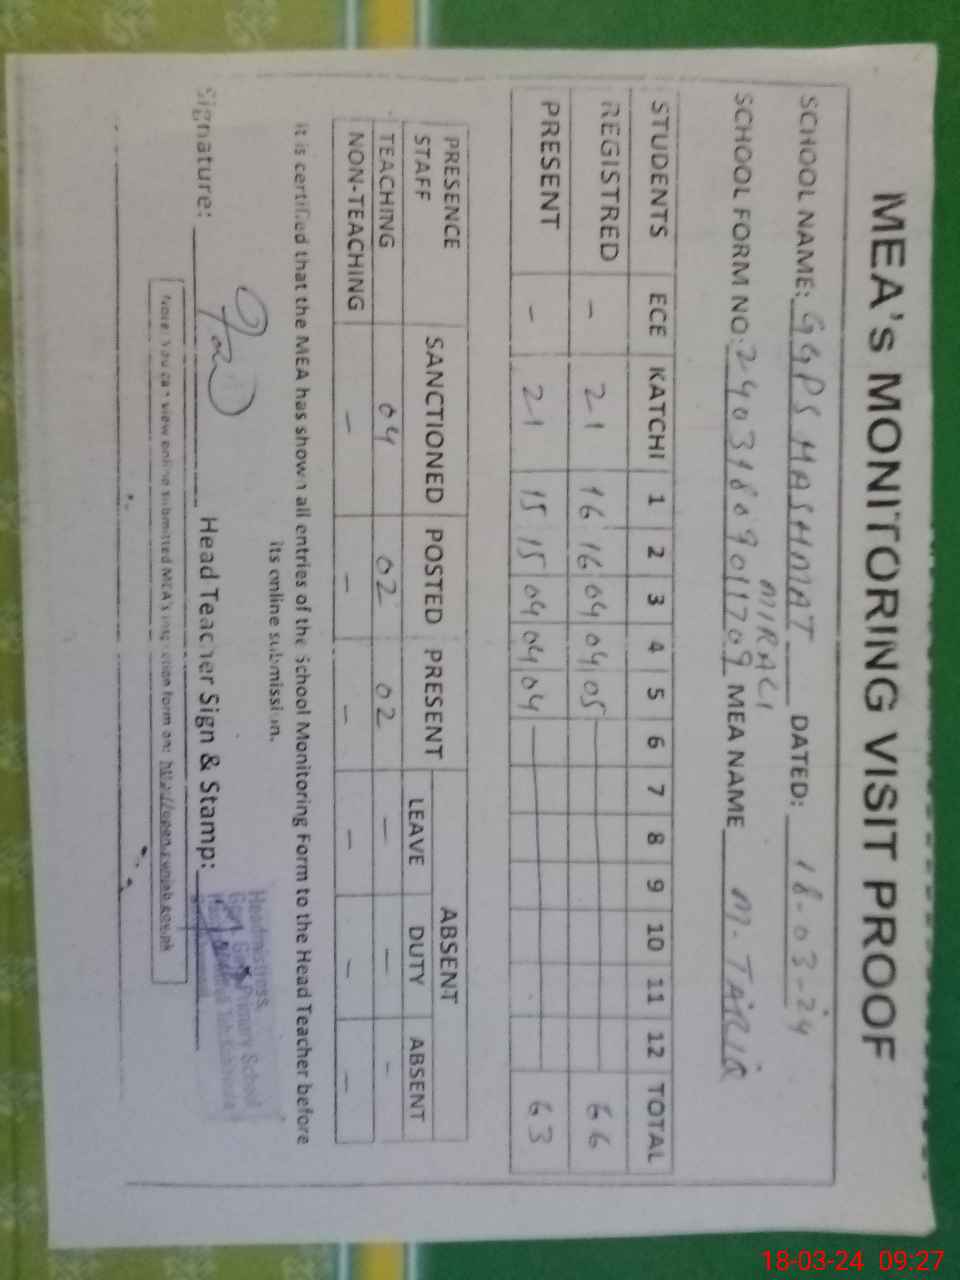 MEA's MONITORING VISIT PROOF
SCHOOL NAME: GGPS HASHMAT DATED: 18-03-24
MIRALI
SCHOOL FORM NO: MEA NAME M. TARIQ
STUDENTS ECE KATCHI 1 2 3 4 5 6 7 8 9 10 11 12 TOTAL
REGISTRED - 21 16 16 04 04 05 66
PRESENT - 21 15 15 04 04 04 63
PRESENCE STAFF SANCTIONED POSTED PRESENT ABSENT
LEAVE DUTY ABSENT
TEACHING 04 02 02 - - -
NON-TEACHING - - - - - -
It is certified that the MEA has shown all entries of the School Monitoring Form to the Head Teacher before
its online submission.
Signature: Head Teacher Sign & Stamp:
Headmistress,
Govt. Girls Primary School
Note: You can view online submitted MEA's inspection form on: http://open.punjab.gov.pk
18-03-24 09:27